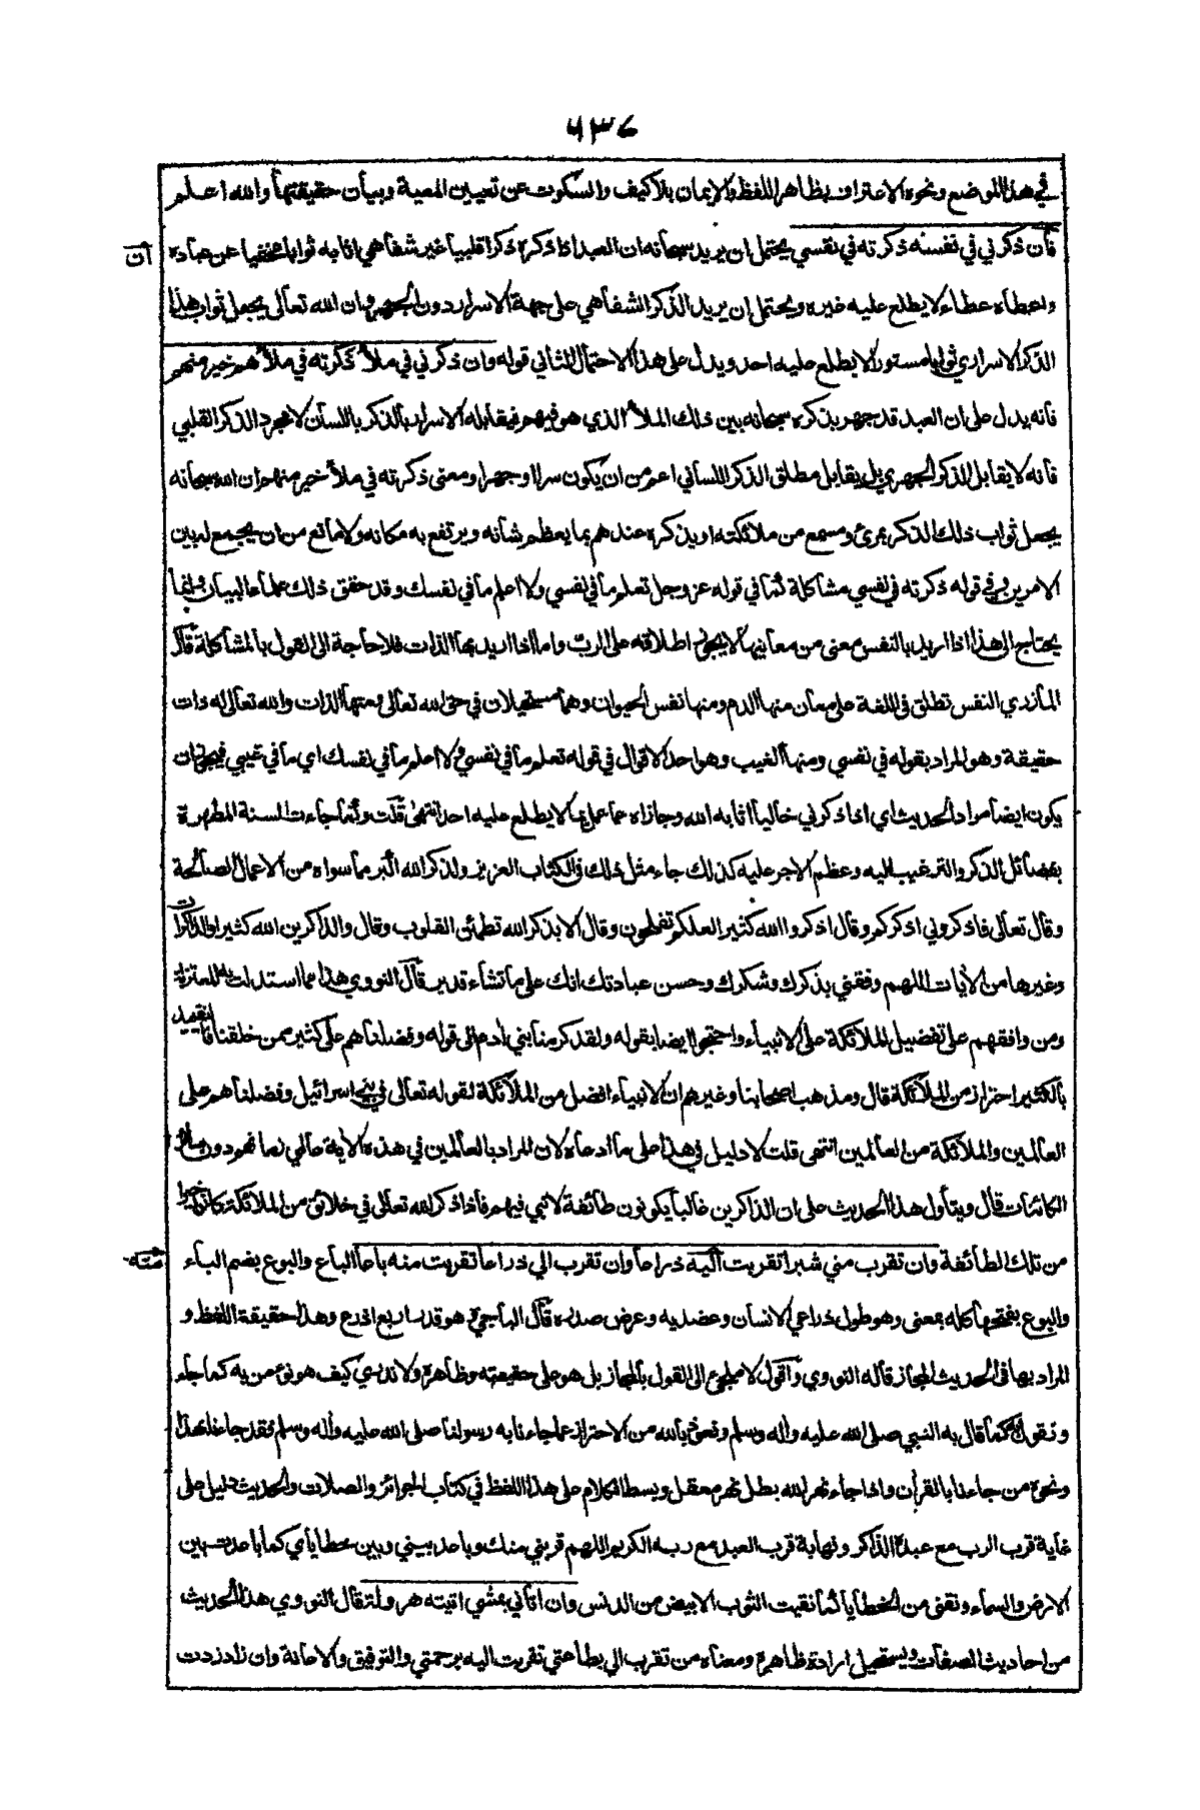 ٦٣٧
في هذا الموضع ونحوه الاعتراف بظاهر اللفظ والايمان بلا كيف والسكوت عن تعيين المعية وبيان حقيقتها والله اعلم
فان ذكرني في نفسه ذكرته في نفسي يحتمل ان يريد سبحانه ان العبد اذا ذكره ذكرا قلبيا غير شفاهي اثابه ثوابا مخفيا عن عباده
ان
واعطاه عطاء لا يطلع عليه غيره ويحتمل ان يريد الذكر الشفاهي على جهة الاسرار دون الجهر وان الله تعالى يجعل ثواب هذا
الذكر الاسراري ثوابا مستورا لا يطلع عليه احد ويدل على هذا الاحتمال الثاني قوله وان ذكرني في ملأ ذكرته في ملأ هم خير منهم
فانه يدل على ان العبد قد جهر بذكره سبحانه بين ذلك الملأ الذي هو فيهم فيقابله الاسرار بالذكر باللسان لا مجرد الذكر القلبي
فانه لا يقابل الذكر الجهري بل يقابل مطلق الذكر اللساني اعم من ان يكون سرا او جهرا ومعنى ذكرته في ملأ خير منهم ان الله سبحانه
يجعل ثواب ذلك الذكر بمرئ ومسمع من ملائكته او يذكره عندهم بما يعظم شأنه ويرتفع به مكانه ولا مانع من ان يجمع له بين
الامرين وفي قوله ذكرته في نفسي مشاكلة كما في قوله عز وجل تعلم ما في نفسي ولا اعلم ما في نفسك وقد حقق ذلك علماء البيان وانما
يحتاج الى هذا اذا اريد بالنفس معنى من معانيها لا يجوز اطلاقه على الرب واما اذا اريد بها الذات فلا حاجة الى القول بالمشاكلة قال
المازدي النفس تطلق في اللغة على معان منها الدم ومنها نفس الحيوان وهما مستحيلان في حق الله تعالى ومنها الذات والله تعالى له ذات
حقيقة وهو المراد بقوله في نفسي ومنها الغيب وهو احد الاقوال في قوله تعلم ما في نفسي ولا اعلم ما في نفسك اي ما في غيبي فيجوز ان
يكون ايضا مراد الحديث اي اذا ذكرني خاليا اثابه الله وجازاه عما عمل بما لا يطلع عليه احد انتهى قلت وكما جاءت السنة المطهرة
بفضائل الذكر والترغيب اليه وعظم الاجر عليه كذلك جاء مثل ذلك في الكتاب العزيز ولذكر الله اكبر مما سواه من الاعمال الصالحة
وقال تعالى فاذكروني اذكركم وقال اذكروا الله كثيرا لعلكم تفلحون وقال الا بذكر الله تطمئن القلوب وقال والذاكرين الله كثيرا والذاكرات
وغيرها من الآيات اللهم وفقني بذكرك وشكرك وحسن عبادتك انك على ما تشاء قدير قال النووي هذا مما استدلت به المعتزلة
ومن وافقهم على تفضيل الملائكة على الانبياء واحتجوا ايضا بقوله ولقد كرمنا بني آدم الى قوله وفضلناهم على كثير ممن خلقنا فالتقييد
بالكثير احتراز من الملائكة قال ومذهب اصحابنا وغيرهم ان الانبياء افضل من الملائكة لقوله تعالى في بني اسرائيل وفضلناهم على
العالمين والملائكة من العالمين انتهى قلت لا دليل في هذا على ما ادعاه لان المراد بالعالمين في هذه الآية عالمي زمانهم دون سائر
الكائنات قال ويتأول هذا الحديث على ان الذاكرين غالبا يكونون طائفة لا نبي فيهم فاذا ذكر الله تعالى في خلائق من الملائكة كانوا خيرا
من تلك الطائفة وان تقرب مني شبرا تقربت اليه ذراعا وان تقرب الي ذراعا تقربت منه باعا الباع والبوع بضم الباء
منه
والبوع بفتحها كله بمعنى وهو طول ذراعي الانسان وعضديه وعرض صدره قال الباجي هو قدر اربع اذرع وهذا حقيقة اللفظ و
المراد بها في الحديث المجاز قاله النووي واقول لا ملجئ الى القول بالمجاز بل هو على حقيقته وظاهره ولا ندري كيف هو نؤمن به كما جاء
ونقول كما قال به النبي صلى الله عليه واله وسلم ونعوذ بالله من الاحتراز عما جاءنا به رسولنا صلى الله عليه واله وسلم فقد جاءنا بهذا
ونحوه من جاءنا بالقرأن واذا جاء نهر الله بطل نهر معقل وبسط الكلام على هذا اللفظ في كتاب الجوائز والصلات والحديث دليل على
غاية قرب الرب مع عبده الذاكر ونهاية قرب العبد مع ربه الكريم اللهم قربني منك وباعد بيني وبين خطاياي كما باعدت بين
الارض والسماء ونقني من الخطايا كما نقيت الثوب الابيض من الدنس وان اتاني بمشي اتيته هرولة قال النووي هذا الحديث
من احاديث الصفات ويستحيل ارادة ظاهره ومعناه من تقرب الي بطاعتي تقربت اليه برحمتي والتوفيق والاعانة وان زاد زدت